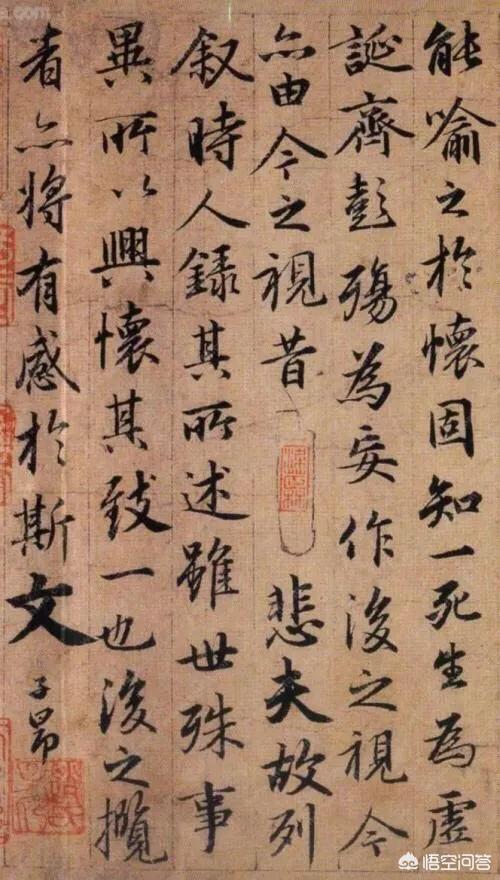 能喻之於懷固知一死生為虛
誕齊彭殤為妄作後之視今
亦由今之視昔
悲夫故列
叙時人錄其所述雖世殊事
異所以興懷其致一也後之攬
者亦將有感於斯文
子昂
悟空问答